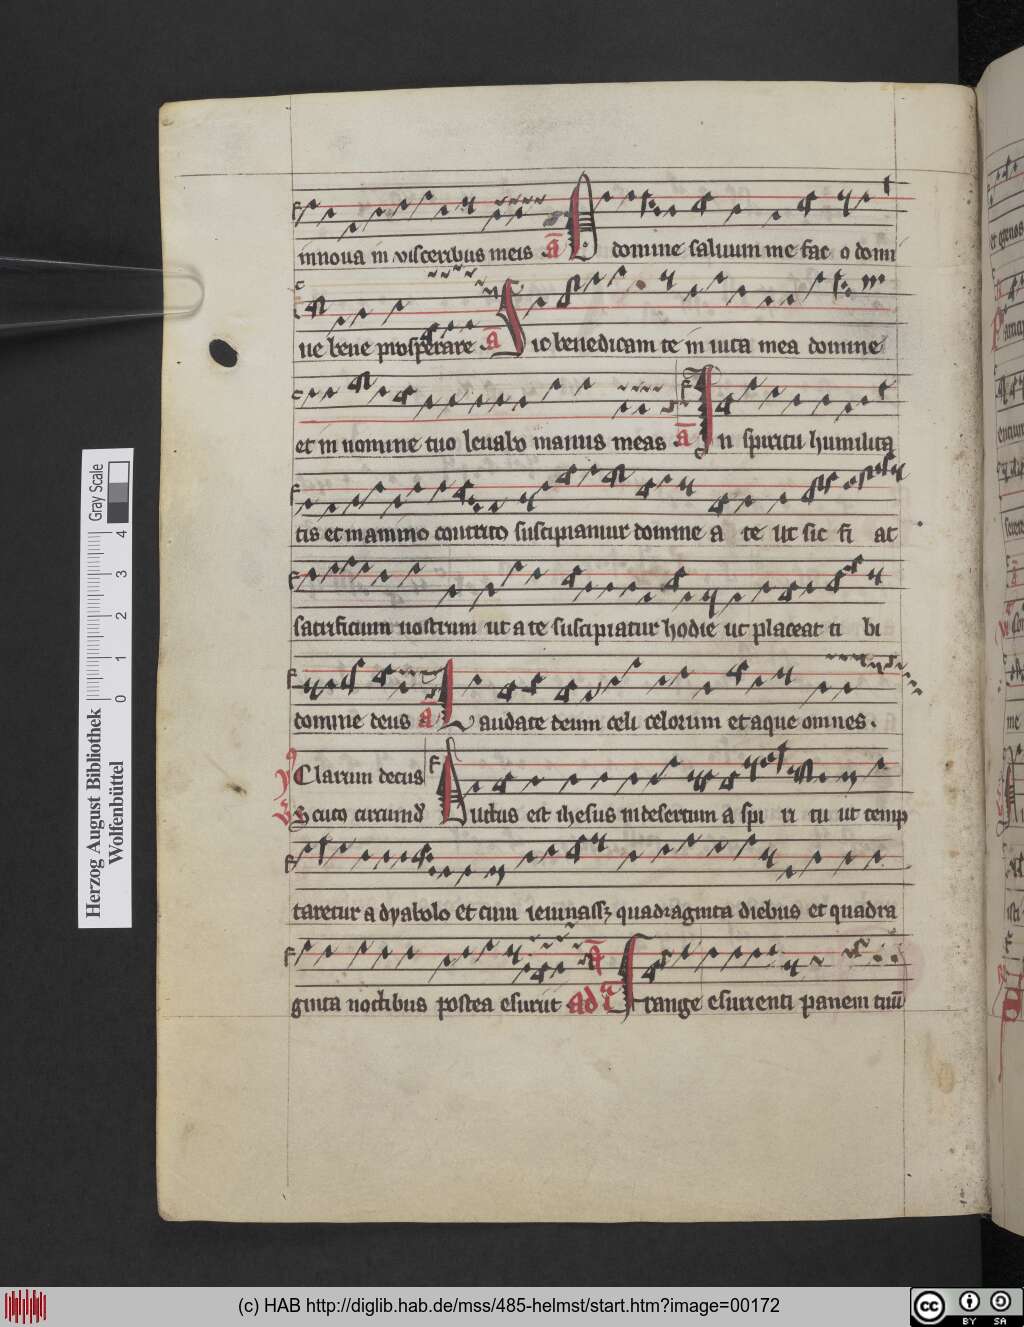 innoua in visceribus meis A O domine saluum me fac o domi
ne bene prosperare A Sic benedicam te in uita mea domine
et in nomine tuo leuabo manus meas A In spiritu humilita
tis et in animo contrito suscipiamur domine a te ut sic fi at
sacrificium nostrum ut a te suscipiatur hodie ut placeat ti bi
domine deus A Laudate deum celi celorum et aque omnes.
Clarum decus
Scuto circumd Ductus est ihesus in desertum a spi ri tu ut temp
taretur a dyabolo et cum ieiunass quadraginta diebus et quadra
ginta noctibus postea esuriit Ad Frange esurienti panem tuū
Gray Scale
0 1 2 3 4
Herzog August Bibliothek
Wolfenbüttel
(c) HAB http://diglib.hab.de/mss/485-helmst/start.htm?image=00172
cc BY SA